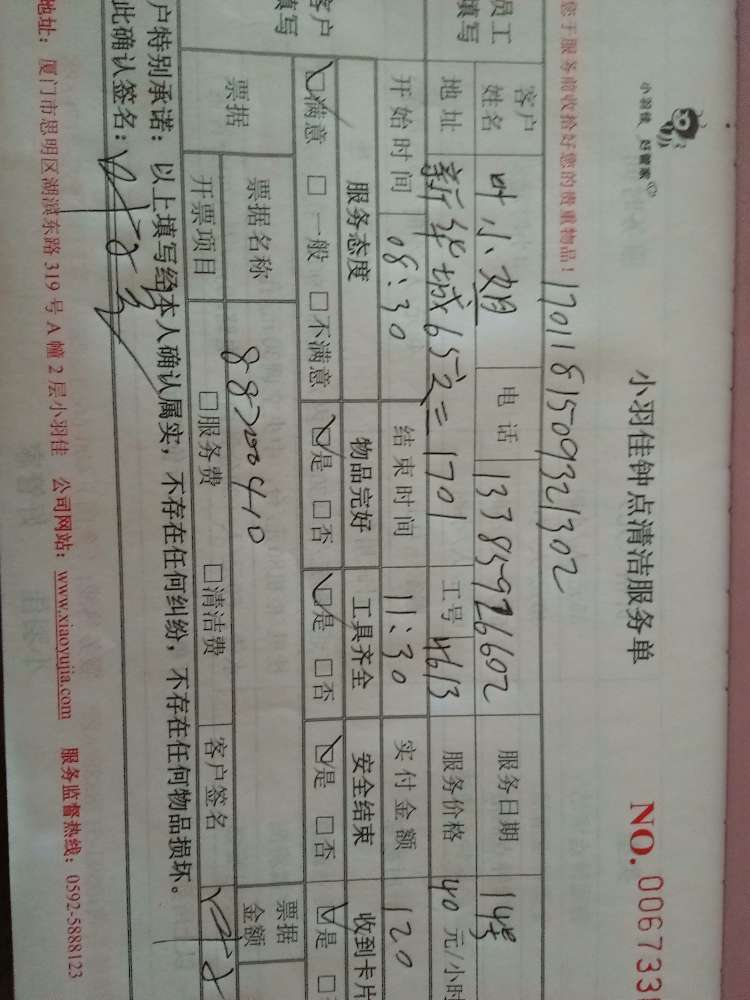 小羽佳 好管家
小羽佳钟点清洁服务单
NO. 006733
您于服务前收拾好您的贵重物品！
1701181509321302
员工
填写
客户
姓名
叶小姐
电话
13385926602
服务日期
14号
地址
新华城65之二1701
工号
4613
服务价格
40 元/小时
开始时间
08:30
结束时间
11:30
实付金额
120
客户
填写
服务态度
物品完好
工具齐全
安全结束
收到卡片
☑满意 □一般 □不满意
☑是 □否
☑是 □否
☑是 □否
☑是 □
票据
票据名称
88200410
票据
金额
开票项目
□服务费
□清洁费
客户签名
户特别承诺：以上填写经本人确认属实，不存在任何纠纷，不存在任何物品损坏。
此确认签名：
地址：厦门市思明区湖滨东路 319 号 A 幢 2 层小羽佳 公司网站：www.xiaoyujia.com 服务监督热线：0592-5888123